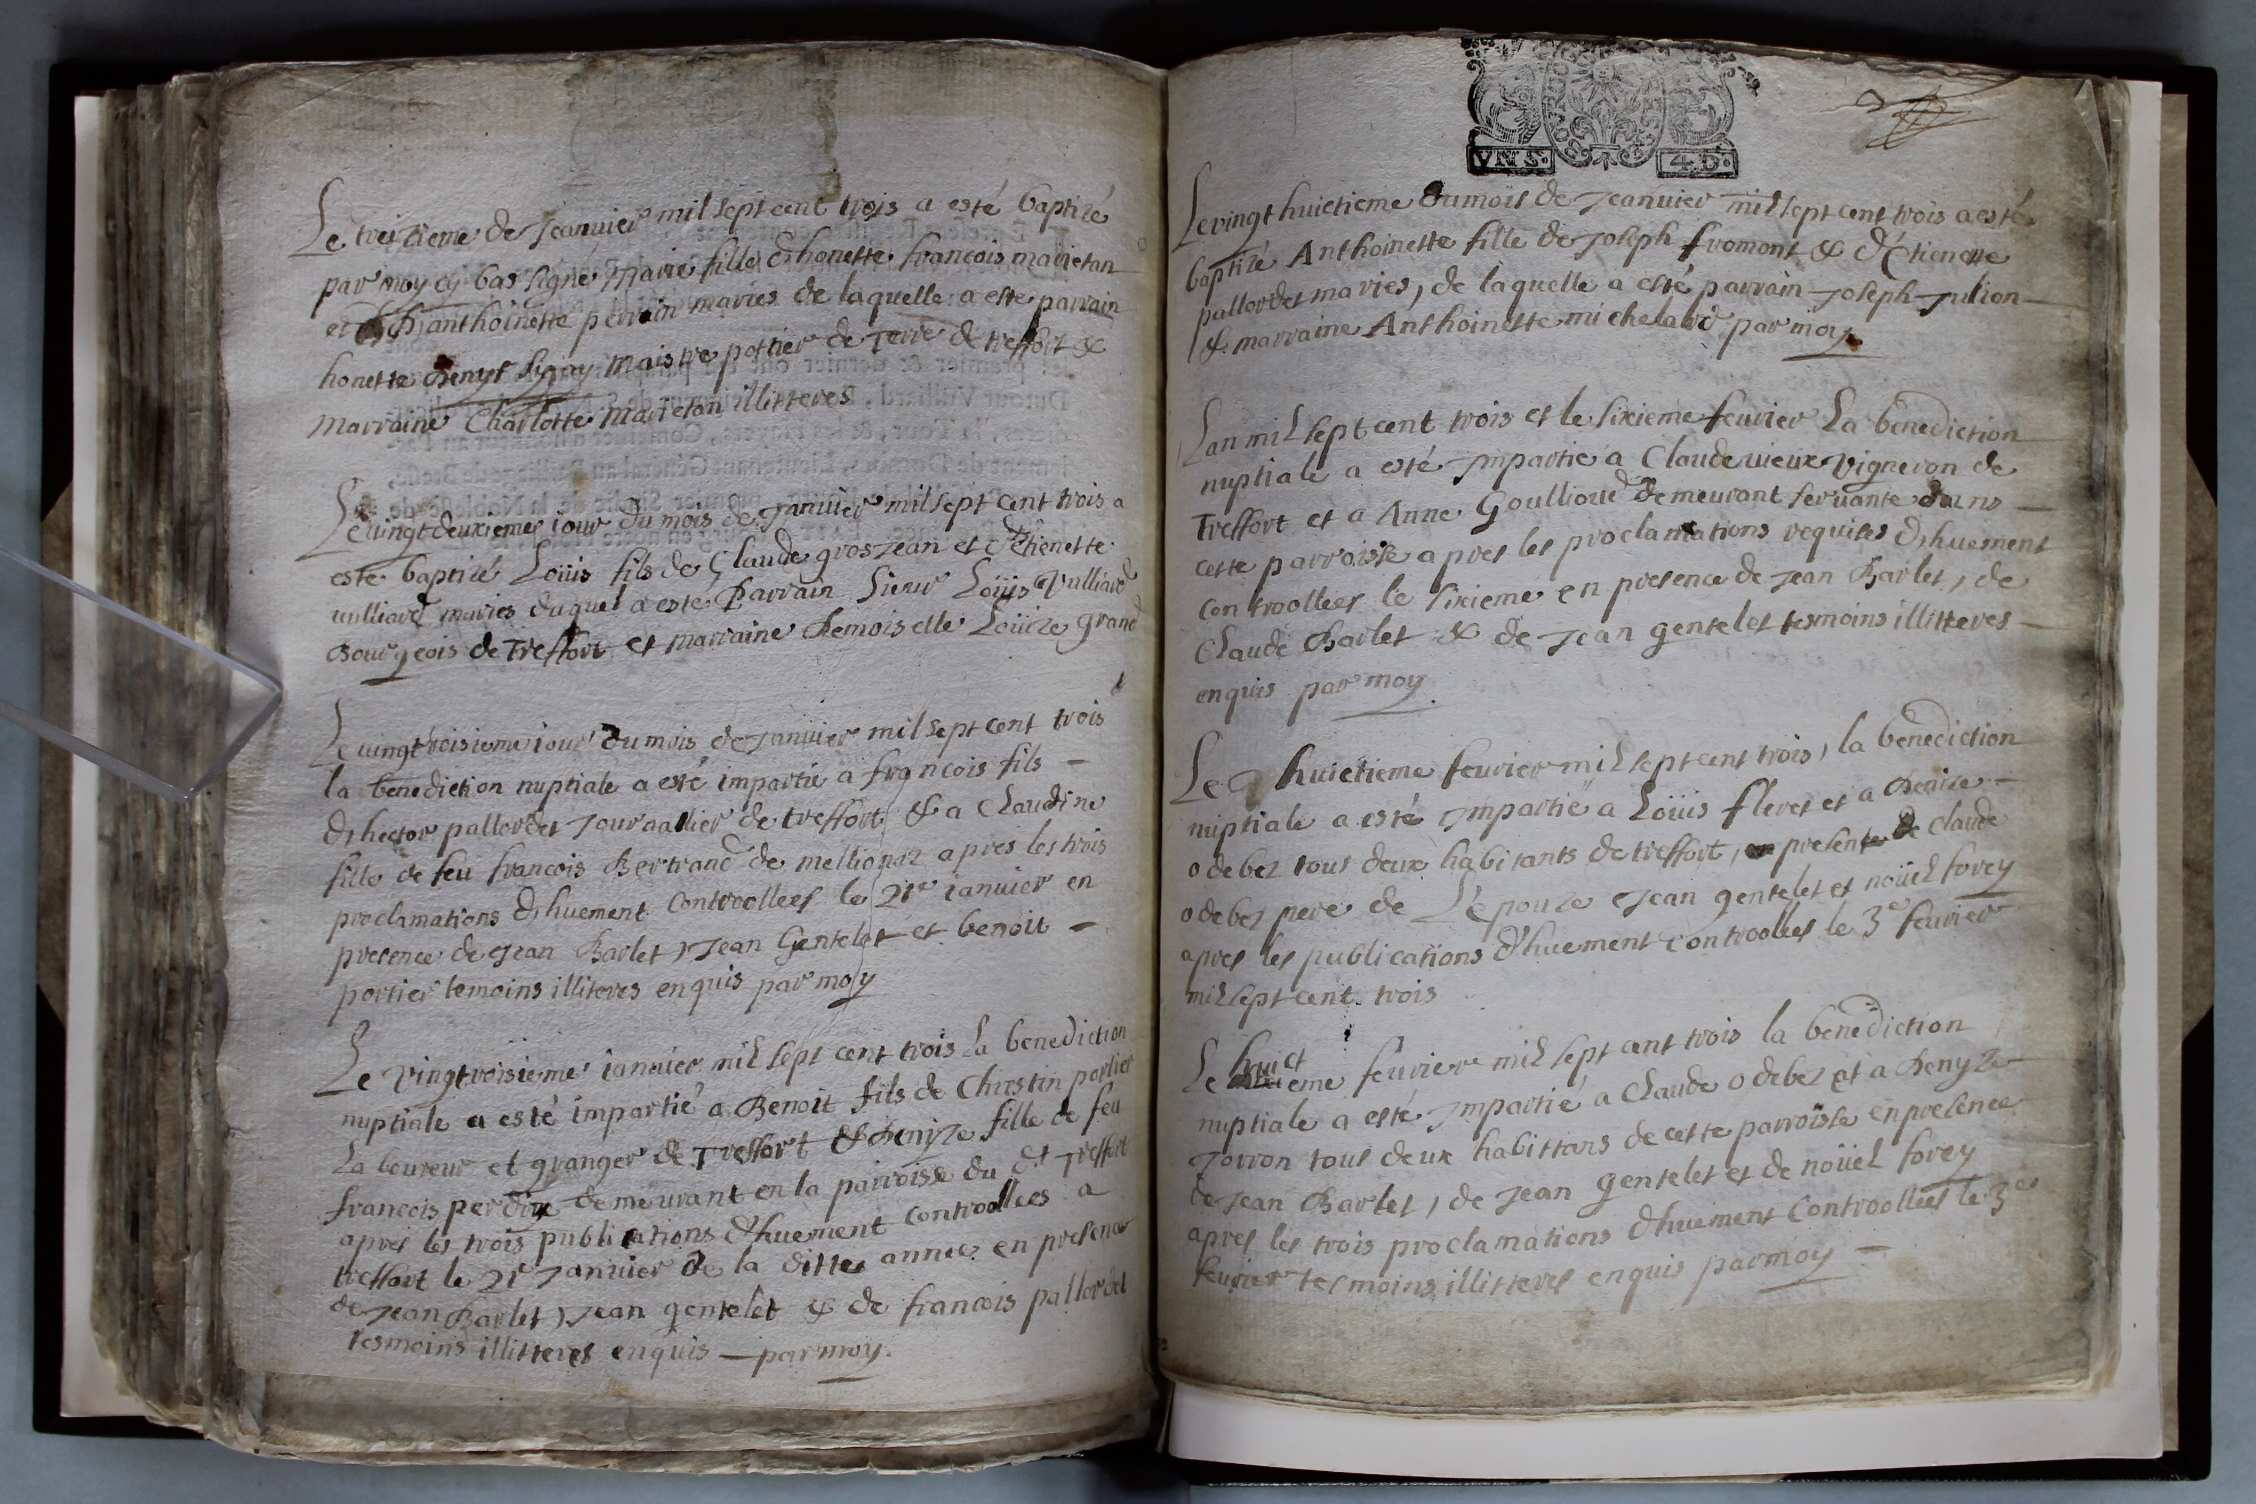 Le treizieme de Jeanvier mil sept cent trois a esté baptizé
par moy cy bas signé Marie fille d'honette francois marietan
et d'anthoinette perrin mariés de laquelle a este parrain
honette Denys sigay maistre pottier de Terre de treffort &
marraine Charlotte marietan illitteres
Le vingt deuxieme iour du mois de Janvier mil sept cent trois a
este baptizé Loüis fils de Claude grosjean et d'Etienette
vulliard mariés duquel a este Parrain Sieur Loüis Vulliard
Bourgeois de Treffort et marraine Demoiselle Loüize grand
Le vingtroisieme iour du mois de Janvier mil sept cent trois
la benediction nuptiale a esté impartie a francois fils
d'hector pallordet Journallier de treffort & a Claudine
fille de feu francois Bertrand de mellionaz apres les trois
proclamations d'huement Controollees le 21e ianvier en
presence de Jean Barlet, Jean Gentelet et benoit
portier temoins illiteres enquis par moy
Le vingtroisieme ianvier mil sept cent trois La benediction
nuptiale a esté impartié a Benoit fils de Christin portier
Laboureur et granger de Treffort & Denyze fille de feu
francois perdrix demeurant en la parroisse du dt Treffort
apres les trois publications d'huement controollees a
treffort le 21e Janvier de la ditte année en presence
de Jean Barlet, Jean gentelet & de francois pallordet
tesmoins illitteres enquis par moy.
VN S. 4.D.
Le vingt huictieme du mois de Jeanvier mil sept cent trois a esté
baptizé Anthoinette fille de Joseph fromont & d'Etienette
pallordet mariés, de laquelle a esté parrain Joseph Julion
& marraine Anthoinette michelard par moy
Lan mil sept cent trois et le sixieme fevrier La benediction
nuptiale a esté Jmpartie a Claude vieux vigneron de
Treffort et a Anne Goullioud demeurant servante dans
cette parroisse apres les proclamations requises d'huement
controollees le sixieme en presence de Jean Barlet, de
Claude Barlet & de Jean gentelet tesmoins illitteres
enquis par moy
Le huictieme fevrier mil sept cent trois, la benediction
nuptiale a esté Jmpartie a Loüis fleret et a Denize
odebez tous deux habitants de treffort, en presence de Claude
odebez pere de L'epouze Jean gentelet et noüel forey
apres les publications d'huement controolles le 3e fevrier
mil sept cent trois
Le huictieme fevrier mil sept cent trois la benediction
nuptiale a esté Jmpartié a Claude odebez et a Denyze
Jorron tous deux habittans de cette parroisse en presence
de Jean Barlet, de Jean gentelet et de noüel forey
apres les trois proclamations d'huement Controollees le 3e
fevrier tesmoins illitteres enquis par moy